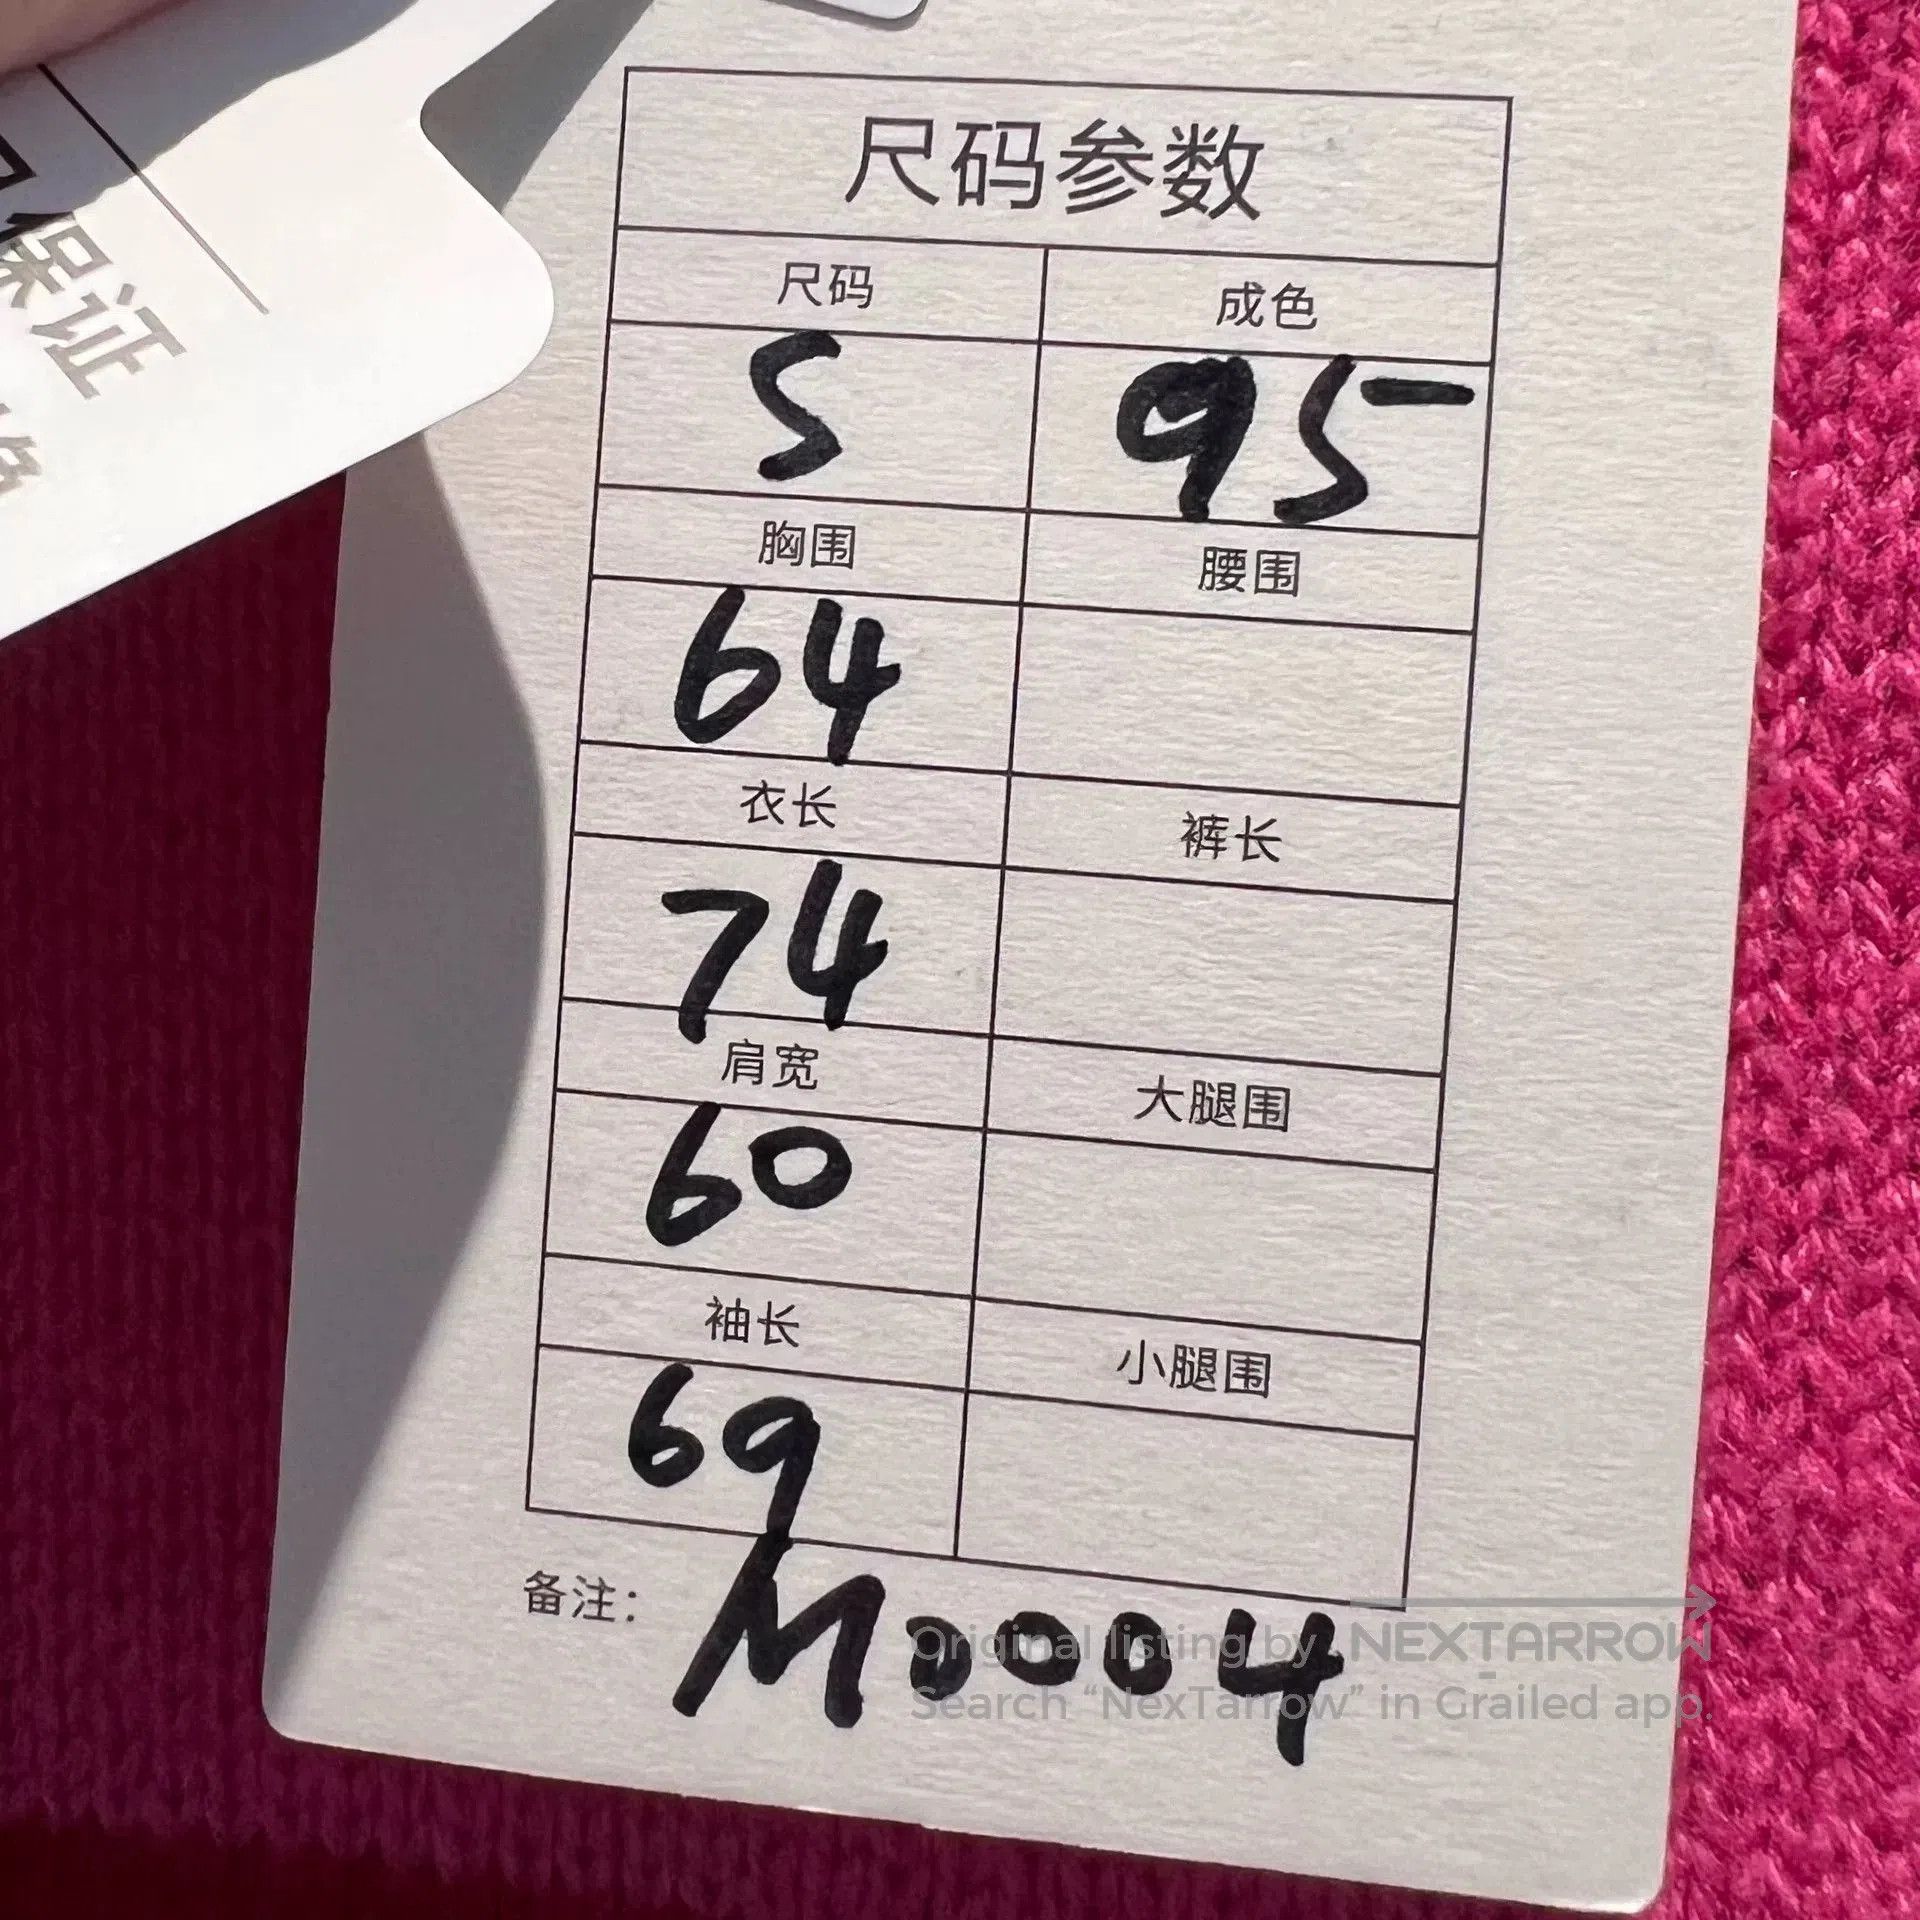 保证
尺码参数
尺码 成色
S 95
胸围 腰围
64
衣长 裤长
74
肩宽 大腿围
60
袖长 小腿围
69
备注: M0004
Original listing by NEXTARROW
Search “NexTarrow” in Grailed app.